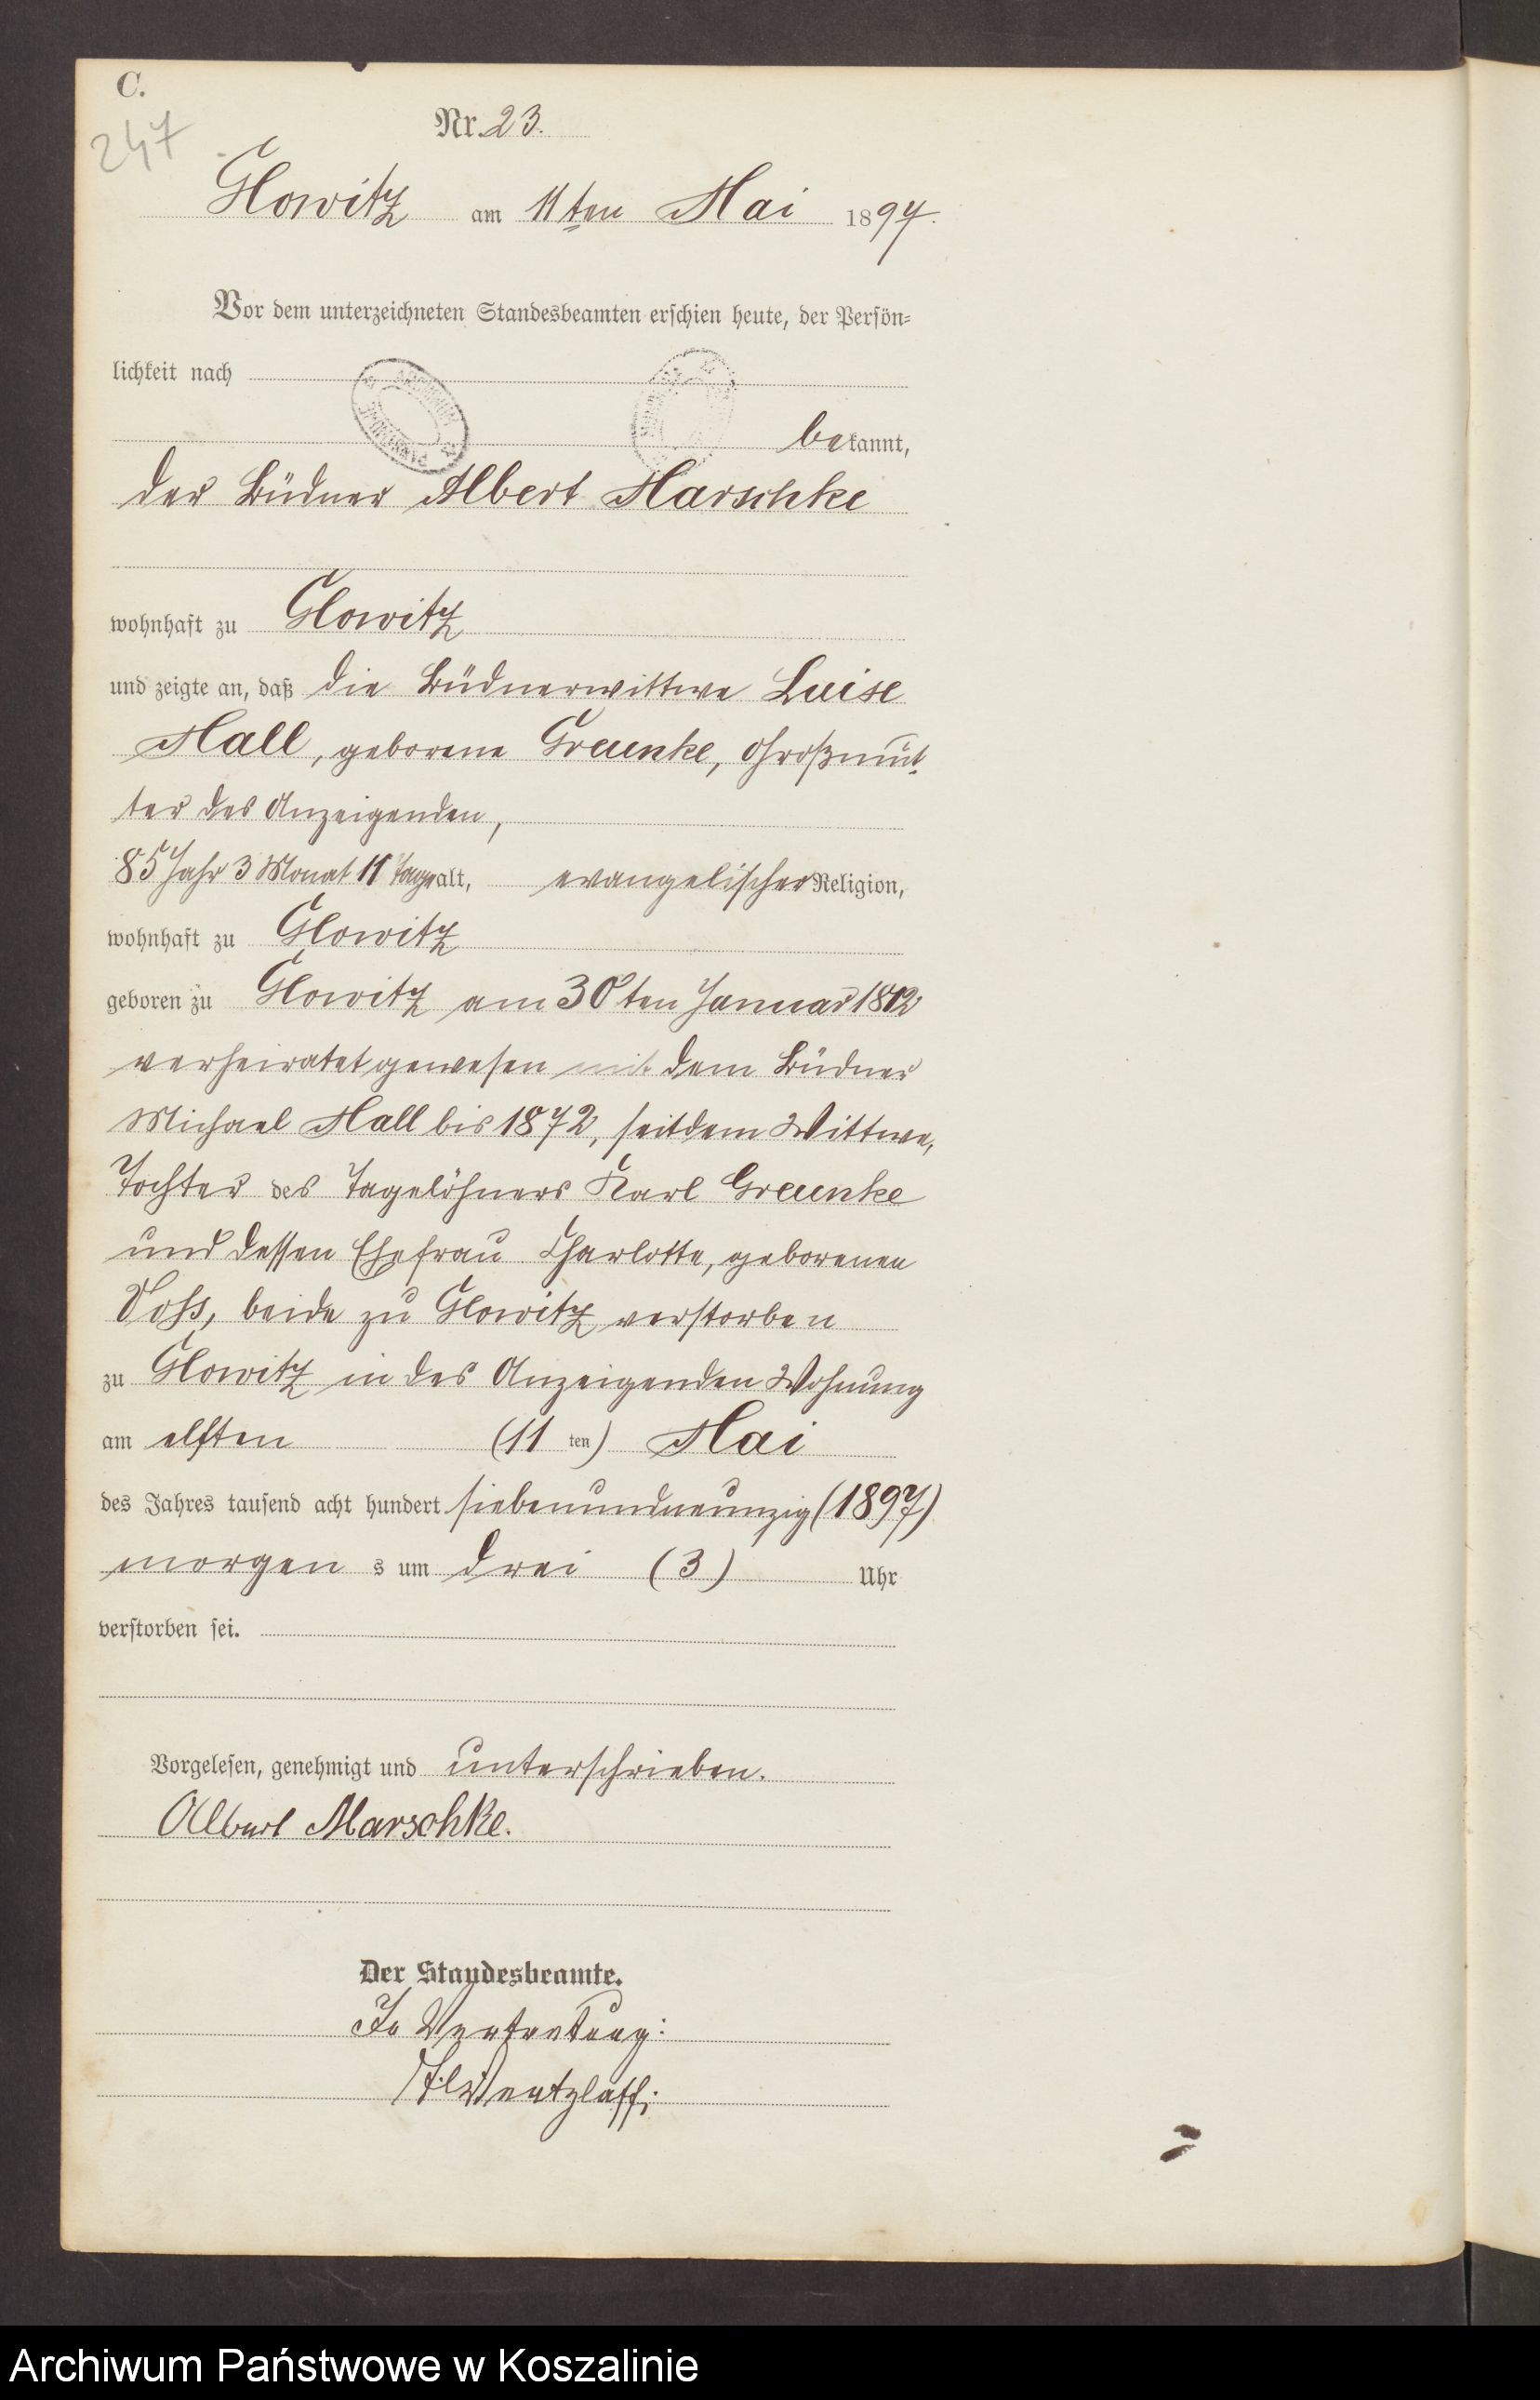 C.
247
Nr. 23.
Glowitz am 11ten Mai 1897.
Vor dem unterzeichneten Standesbeamten erschien heute, der Persön-
lichkeit nach
bekannt,
der Büdner Albert Marschke
wohnhaft zu Glowitz
und zeigte an, daß die Büdnerwittwe Luise
Mall, geborene Greunke, Großmut-
ter des Anzeigenden,
85 Jahr 3 Monat 11 Tage alt, evangelischer Religion,
wohnhaft zu Glowitz
geboren zu Glowitz am 30ten Januar 1812
verheiratet gewesen mit dem Büdner
Michael Mall bis 1872, seitdem Wittwe,
Tochter des Tagelöhners Karl Greunke
und dessen Ehefrau Charlotte, geborenen
Voß, beide zu Glowitz verstorben
zu Glowitz in des Anzeigenden Wohnung
am elften (11ten) Mai
des Jahres tausend acht hundert siebenundneunzig (1897)
morgens um drei (3) Uhr
verstorben sei.
Vorgelesen, genehmigt und unterschrieben.
Albert Marschke.
Der Standesbeamte.
In Vertretung:
Wentzlaff.
Archiwum Państwowe w Koszalinie